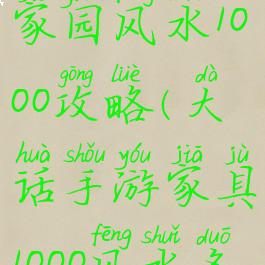 家园风水10
gōng lüè dà
00攻略(大
huà shǒu yóu jiā jù
话手游家具
fēng shuǐ duō
1000风水多